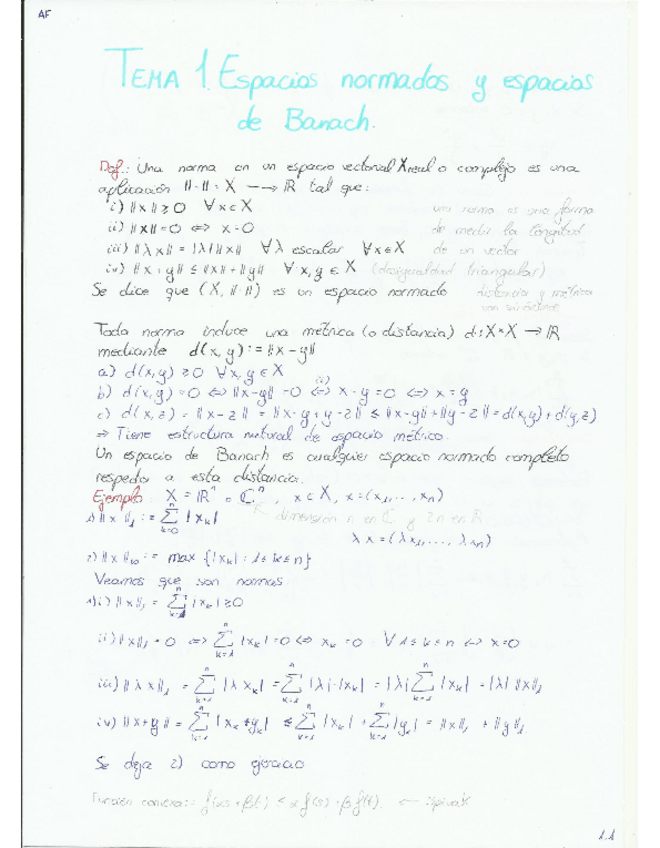 AF
TEMA 1. Espacios normados y espacios
de Banach.
Def.: Una norma en un espacio vectorial X real o complejo es una
aplicación ||·||: X → ℝ tal que:
i) ||x|| ≥ 0 ∀x∈X
una norma es una forma
ii) ||x|| = 0 ⇔ x=0
de medir la longitud
iii) ||λx|| = |λ| ||x|| ∀λ escalar ∀x∈X
de un vector
iv) ||x+y|| ≤ ||x||+||y|| ∀x,y∈X (desigualdad triangular)
Se dice que (X, || ||) es un espacio normado
distancia y métrica
son sinónimos
Toda norma induce una métrica (o distancia) d: X×X → ℝ
mediante d(x,y) := ||x-y||
a) d(x,y) ≥ 0 ∀x,y∈X
b) d(x,y)=0 ⇔ ||x-y||=0 ⇔(ii) x-y=0 ⇔ x=y
c) d(x,z) = ||x-z|| = ||x-y+y-z|| ≤ ||x-y||+||y-z|| = d(x,y)+d(y,z)
⇒ Tiene estructura natural de espacio métrico.
Un espacio de Banach es cualquier espacio normado completo
respecto a esta distancia.
Ejemplo: X = ℝⁿ o ℂⁿ, x∈X, x=(x₁,...,xₙ)
dimensión n en ℂ y 2n en ℝ
1) ||x||₁ := Σ |xₖ|
λx = (λx₁,..., λxₙ)
2) ||x||∞ := max {|xₖ| : 1≤k≤n}
Veamos que son normas
1) i) ||x||₁ = Σ |xₖ| ≥ 0
ii) ||x||₁ = 0 ⇔ Σₖ₌₁ⁿ |xₖ| = 0 ⇔ xₖ = 0 ∀ 1≤k≤n ⇔ x=0
iii) ||λx||₁ = Σₖ₌₁ⁿ |λxₖ| = Σₖ₌₁ⁿ |λ|·|xₖ| = |λ| Σₖ₌₁ⁿ |xₖ| = |λ| ||x||₁
iv) ||x+y|| = Σₖ₌₁ⁿ |xₖ+yₖ| ≤ Σₖ₌₁ⁿ |xₖ| + Σₖ₌₁ⁿ |yₖ| = ||x||₁ + ||y||₁
Se deja 2) como ejercicio
Función convexa: f(αs+βt) ≤ αf(s)+βf(t) ← Spivak
1.1